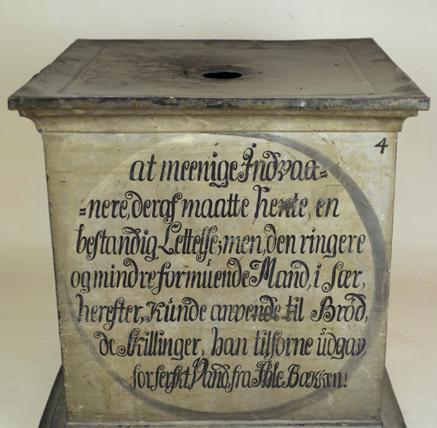 4
at meenige Indvaa=
=nere, deraf maatte hente, en
bestandig Lettelse; men, den ringere
og mindre formuende Mand, i Sær,
herefter, kunde anvende til Brød,
de Skillinger, han tilforne üdgav
for ferskt Vand, fra Ible Bækken!